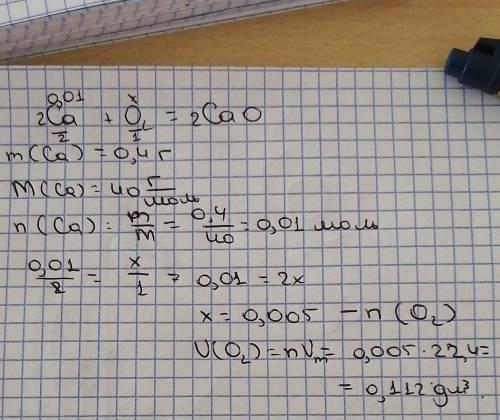 0,01 x
2Ca + O₂ = 2CaO
2 1
m(Ca) = 0,4 г
M(Ca) = 40 г/моль
n(Ca) = m/M = 0,4/40 = 0,01 моль
0,01/2 = x/1 ⇒ 0,01 = 2x
x = 0,005 – n(O₂)
V(O₂) = nVₘ = 0,005 · 22,4 =
= 0,112 дм³.